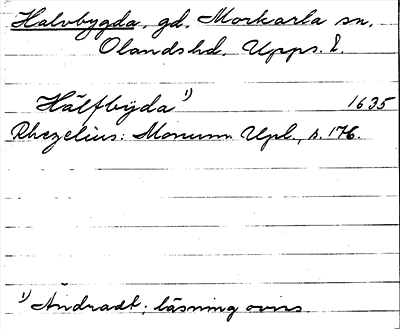 Halvbygda, gd. Morkarla sn,
Olands hd. Upps. l.
Hälfbÿda ¹⁾ 1635
Rhezelius: Monum. Upl., s. 176.
¹⁾ Ändradt; läsning oviss